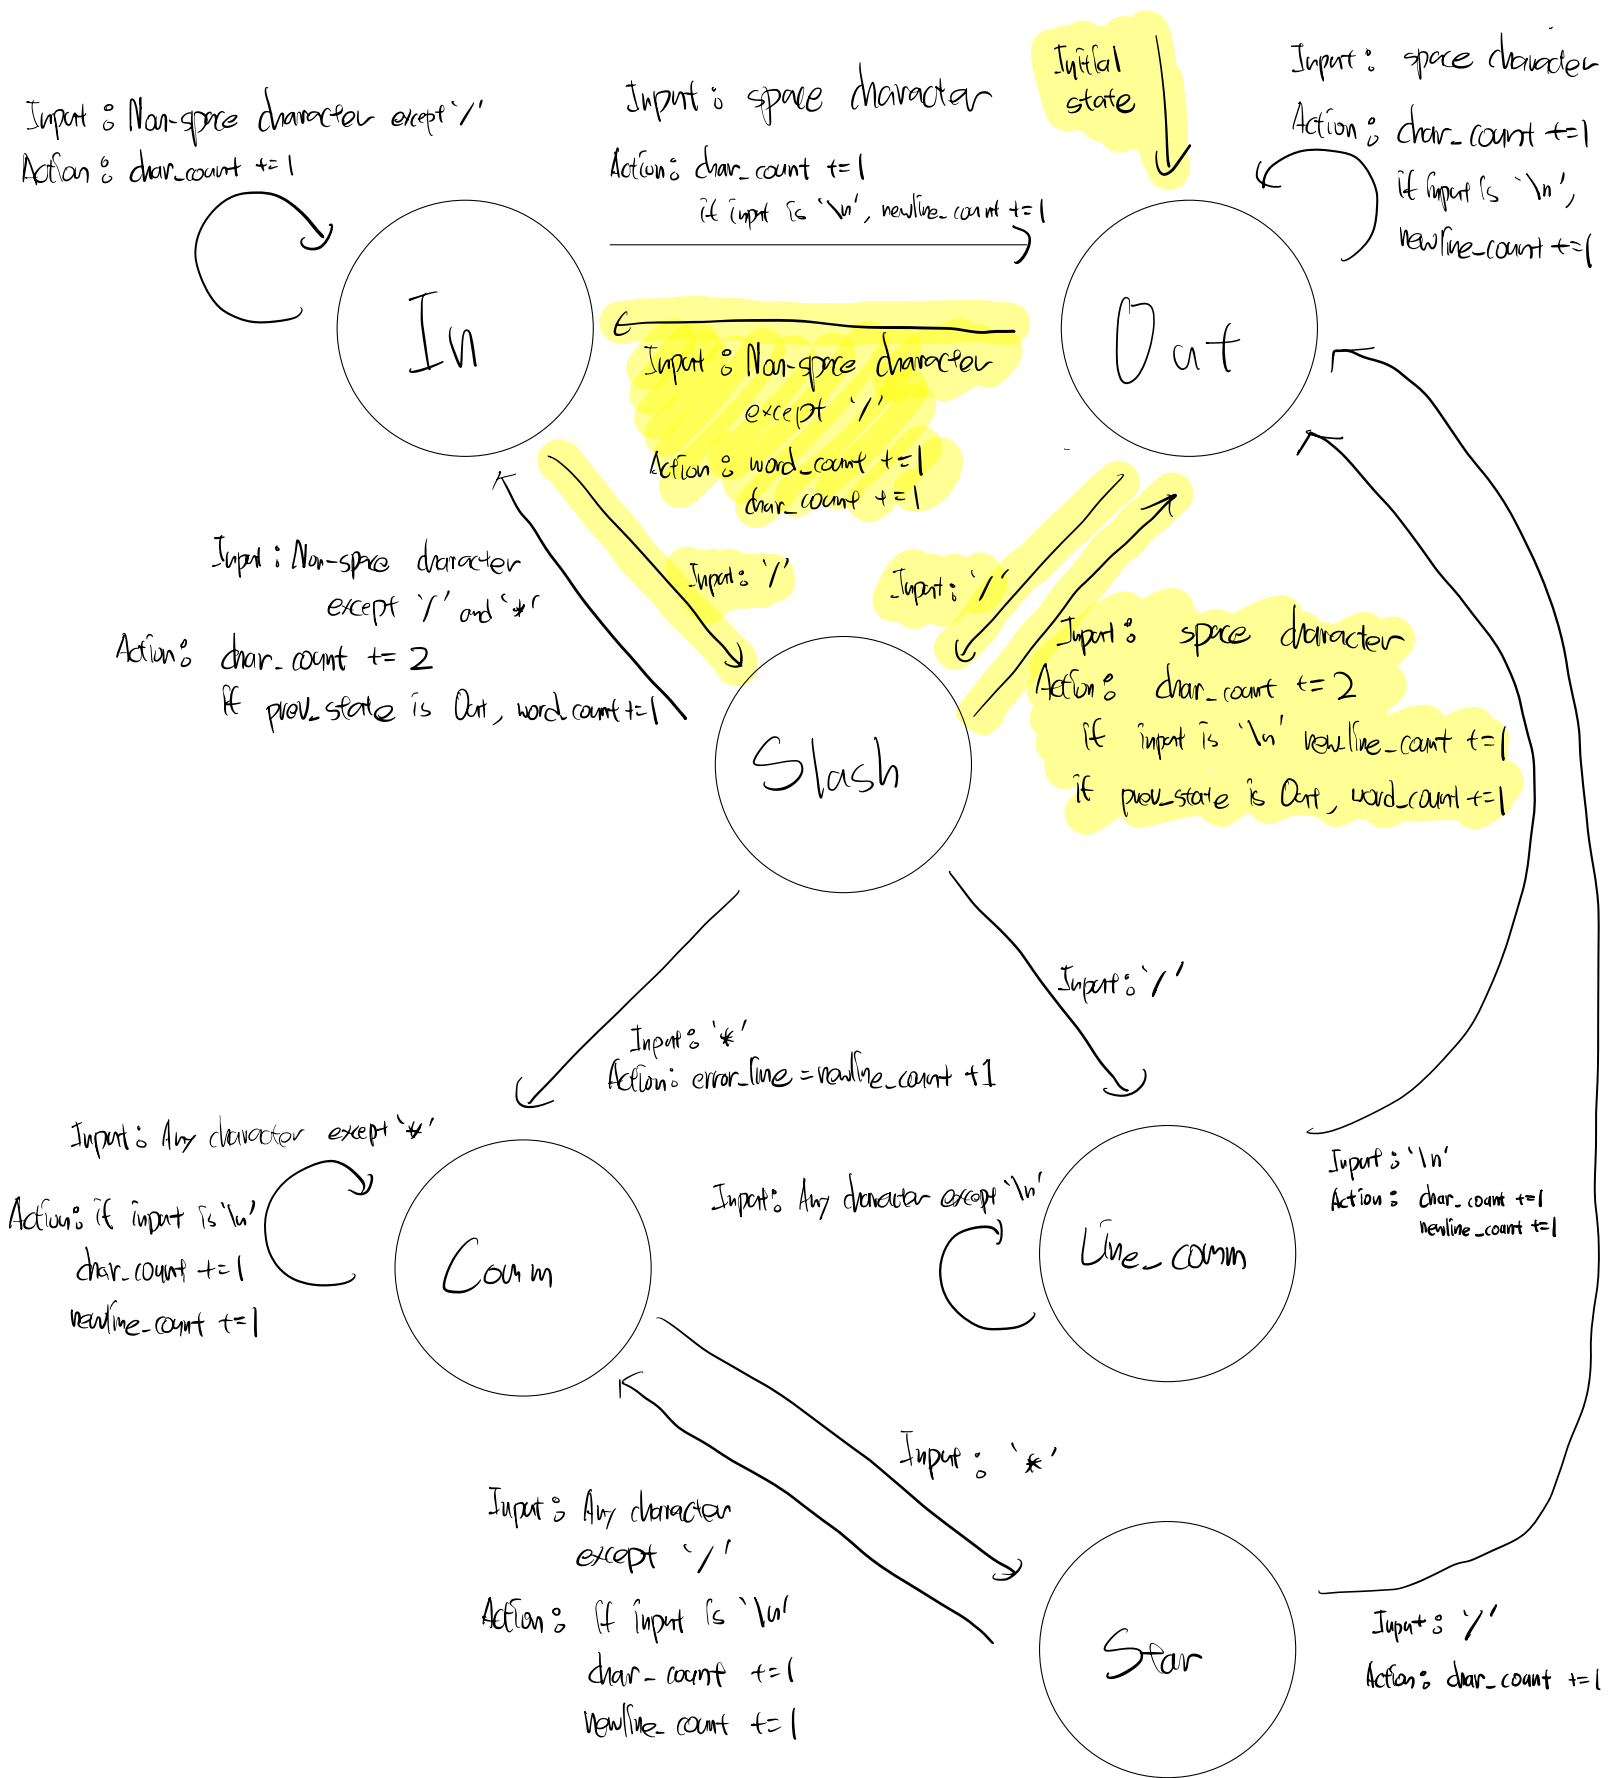 Initial
state
Input : space character
Action : char_count +=1
if input is '\n',
newline_count +=1
Input : Non-space character except '/'
Action : char_count +=1
Input : space character
Action : char_count +=1
if input is '\n', newline_count +=1
In
Out
Input : Non-space character
except '/'
Action : word_count +=1
char_count +=1
Input : '/'
Input : '/'
Input : Non-space character
except '/' and '*'
Action : char_count += 2
If prev_state is Out, word_count +=1
Input : space character
Action : char_count += 2
if input is '\n' newline_count +=1
if prev_state is Out, word_count +=1
Slash
Input : '/'
Input : '*'
Action : error_line = newline_count +1
Input : Any character except '*'
Action : if input is '\n'
char_count +=1
newline_count +=1
Comm
Input : Any character except '\n'
Line_comm
Input : '\n'
Action : char_count +=1
newline_count +=1
Input : '*'
Input : Any character
except '/'
Action : If input is '\n'
char_count +=1
newline_count +=1
Star
Input : '/'
Action : char_count +=1